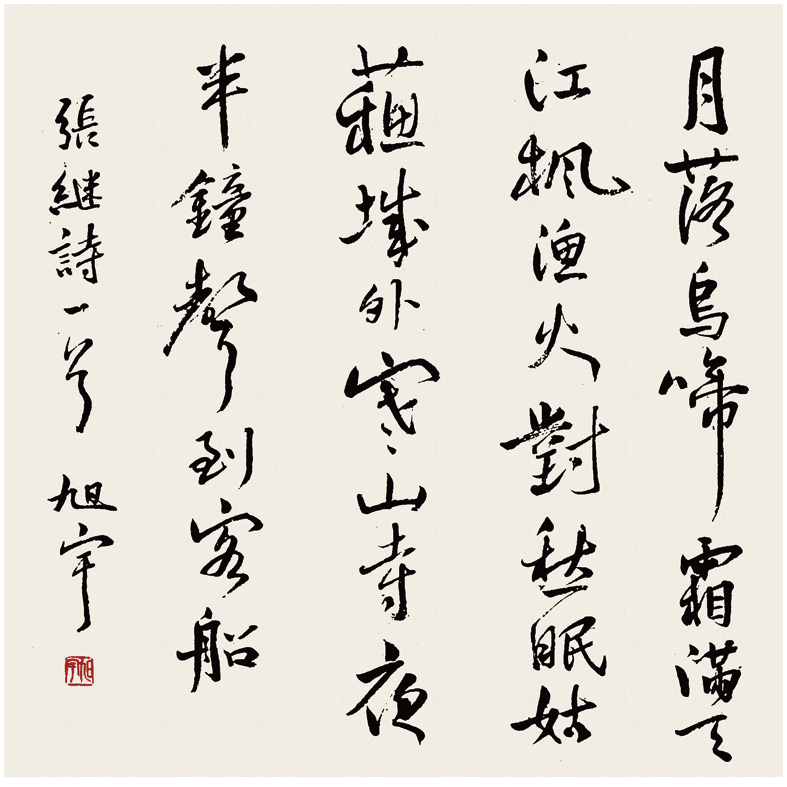 月落烏啼霜滿天
江楓漁火對愁眠姑
蘓城外寒山寺夜
半鐘聲到客船
張继詩一首 旭宇
旭宇